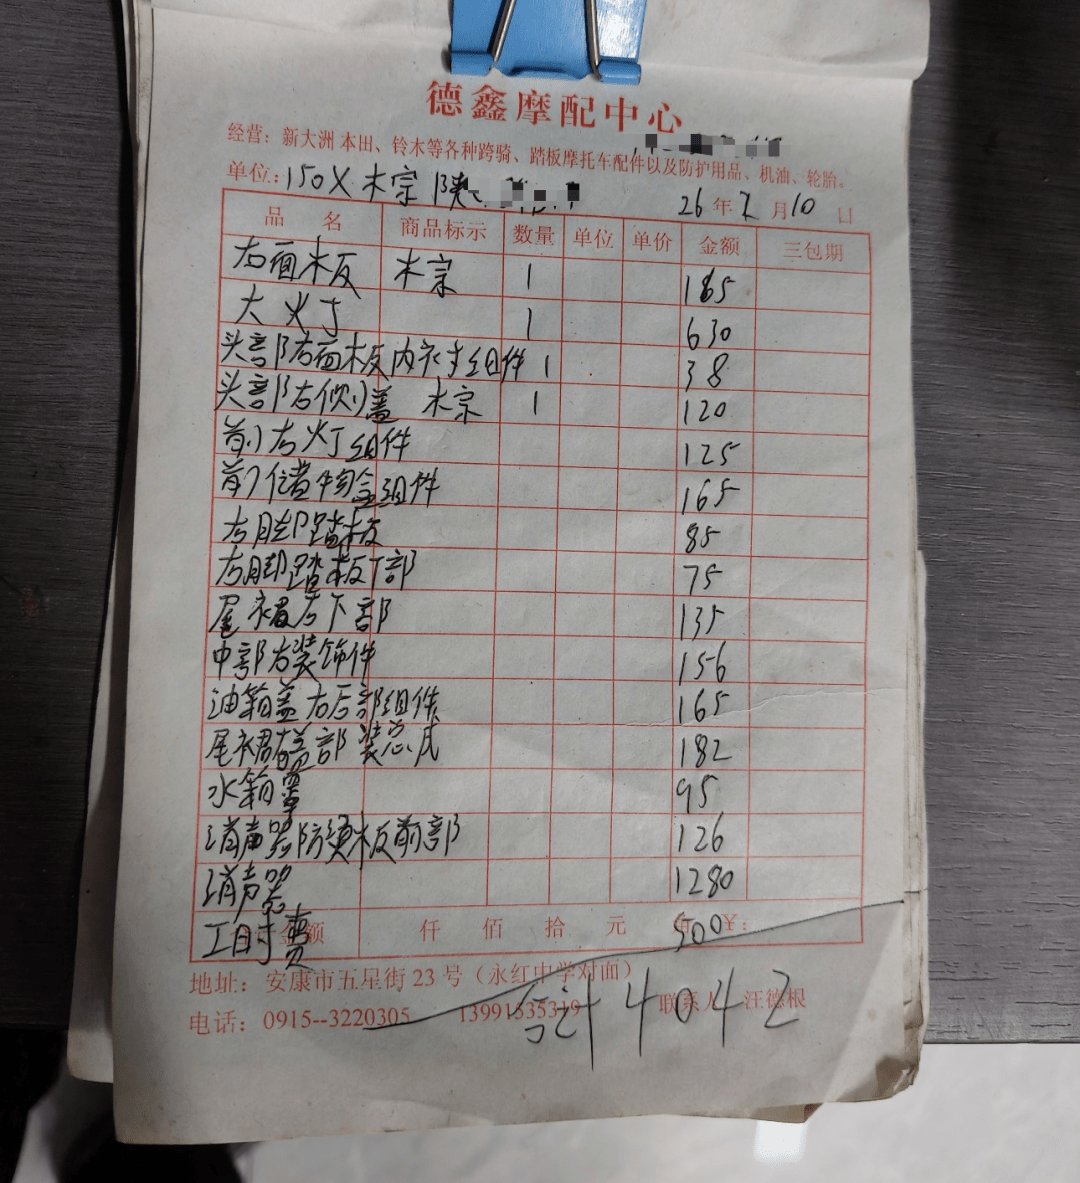 德鑫摩配中心
经营：新大洲本田、铃木等各种跨骑、踏板摩托车配件以及防护用品、机油、轮胎。
单位：150X 木宗 陕 26年2月10日
品名 商品标示 数量 单位 单价 金额 三包期
右面板 木宗 1 165
大火丁 1 630
头部右面板内衬组件 1 38
头部右侧盖 木宗 1 120
前右灯组件 125
前储物盒组件 165
右脚踏板 85
右脚踏板下部 75
尾裙右下部 135
中部右装饰件 156
油箱盖右后部组件 165
尾裙盖部装总成 182
水箱罩 95
消声器防烫板前部 126
消声器 1280
工时费 金额 仟 佰 拾 元 500 ¥：
地址：安康市五星街23号（永红中学对面）
电话：0915--3220305 13991535319 联系人 汪德根
合计4042